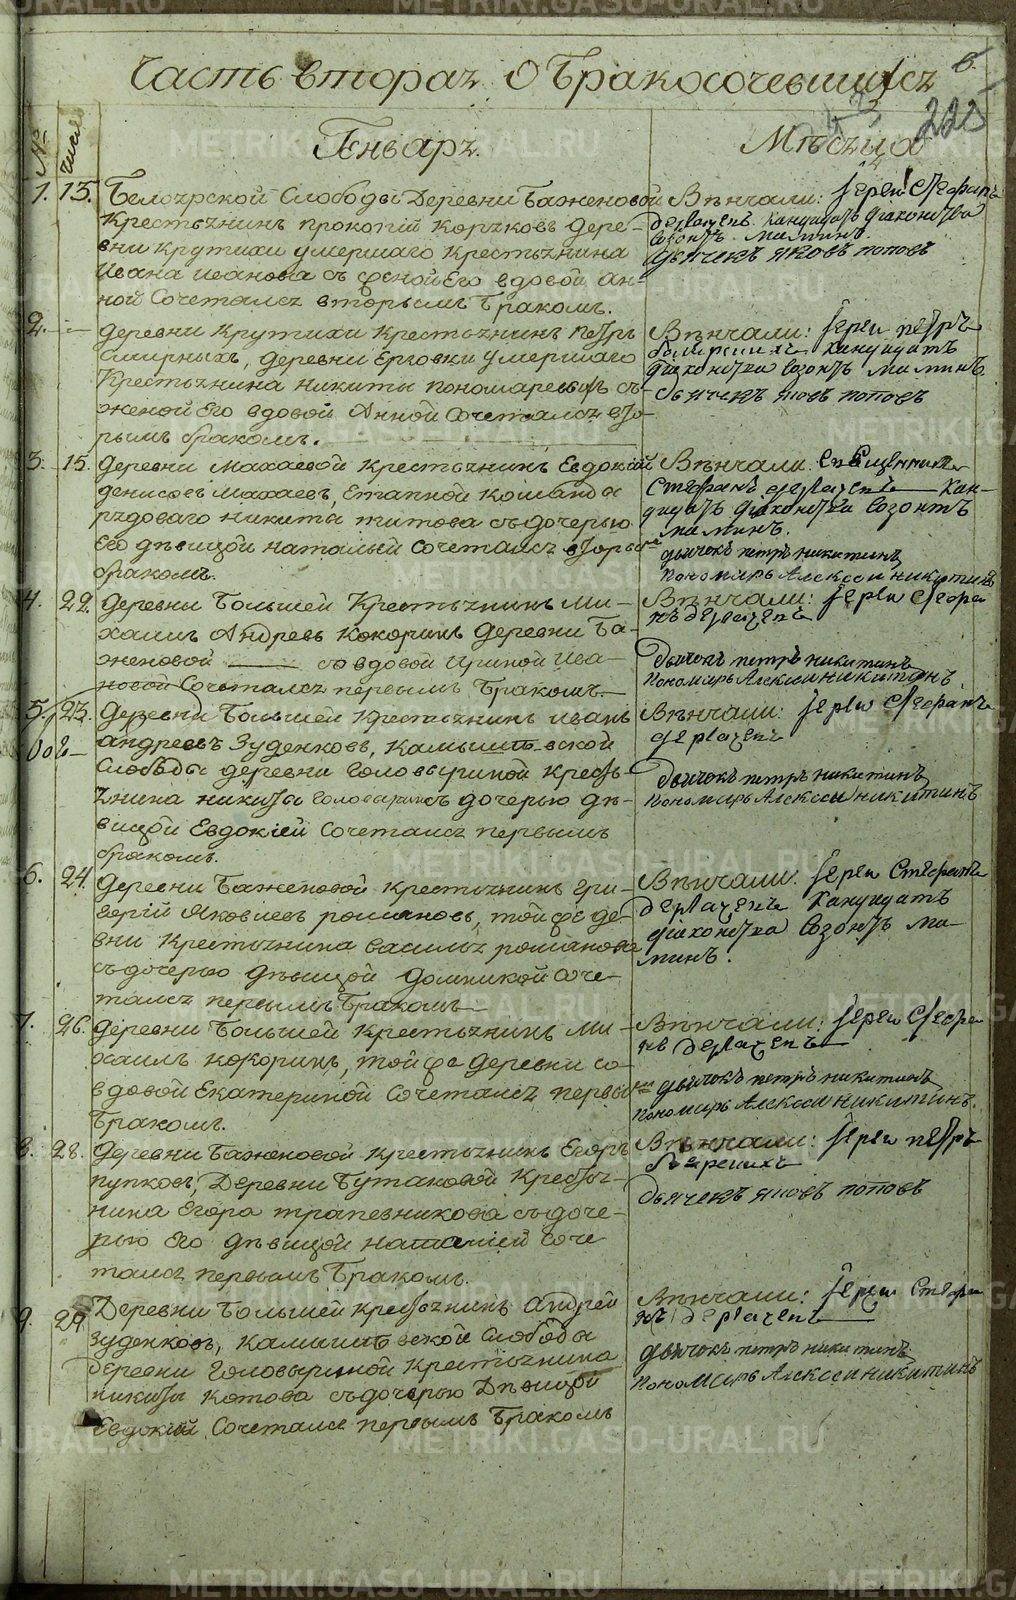 Часть вторая о бракосочевшихся
6.
223
№
число
Генваря.
Мѣсяца
1. 13. Белоярской Слободы Деревни Баженовой
Крестьянинъ Прокопій Коряковъ Дере-
вни Крутихи умершаго Крестьянина
Ивана Иванова съ женой его вдовой Ан-
ной Сочетался вторымъ бракомъ.
Вѣнчали: Іереи Стефанъ
Кандидатъ діаконства
Созонтъ Маминъ.
дьячекъ Яковъ Попоѣъ
2. — деревни Крутихи Крестьянинъ Петръ
Смирныхъ, деревни Ерзовки умершаго
Крестьянина Никиты Пономарева съ
женой его вдовой Анной Сочетался вто-
рымъ бракомъ.
Вѣнчали: Іереи Петръ
Кандидатъ
діаконства Созонтъ Маминъ.
дьячекъ Яковъ Поповъ
3. 15. Деревни Махаевой Крестьянинъ Евдокій
Денисовъ Махаевъ, Етапной команды
рядоваго Никиты Титова съ дочерью
его дѣвицей Натальей Сочетался вторы
бракомъ.
Вѣнчали: Священники
Стефанъ Кан-
дидатъ діаконства Созонтъ
Маминъ.
дьячокъ Петръ Никитинъ
пономарь Алексеи Никитинъ
4. 22. Деревни Большей Крестьянинъ Ми-
хаилъ Андреевъ Кокоринъ Деревни Ба-
женовой съ вдовой Ириной Ива-
новой Сочетался первымъ бракомъ.
Вѣнчали: Іереи Стефа
нъ
дьячокъ Петръ Никитинъ
пономарь Алексеи Никитинъ.
5. 23. Деревни Большей Крестьянинъ Иванъ
Андреевъ Зуденковъ, Камышевской
Слободы деревни Головыриной Кресть-
янина Никиты Головырина съ дочерью дѣ-
вицей Евдокіей Сочетался первымъ
бракомъ.
Вѣнчали: Іереи Стефанъ
дьячокъ Петръ Никитинъ
пономарь Алексеи Никитинъ
6. 24. Деревни Баженовой Крестьянинъ Гри-
горій Яковлевъ Романовъ, той же де-
вни Крестьянина Василья Романова
съ дочерью дѣвицей Домникой Соче-
тался первымъ бракомъ
Вѣнчали: Іереи Стефанъ
Кандидатъ
діаконства Созонтъ Ма-
минъ.
7. 26. Деревни Большей Крестьянинъ Ми-
хаилъ Кокоринъ, той же Деревни со
вдовой Екатериной Сочетался первы
бракомъ.
Вѣнчали: Іереи Стефа
нъ
дьячокъ Петръ Никитинъ
пономарь Алексеи Никитинъ.
8. 28. Деревни Баженовой Крестьянинъ Егоръ
Пупковъ, Деревни Бутаковой Кресть-
нина Егора Трапезникова съ доче-
рью его дѣвицей Наталией Соче
тался первымъ бракомъ.
Вѣнчали: Іереи Петръ
дьячекъ Яковъ Поповъ
9. 29 Деревни Большей Крестьянинъ Андрей
Зуденковъ, Камышевской Слободы
деревни Головыриной Крестьянина
Никиты Котова съ дочерью Дѣвицей
Евдокіей Сочетался первымъ бракомъ
Вѣнчали: Іереи Стефа
нъ
дьячокъ Петръ Никитинъ
пономарь Алексеи Никитинъ
METRIKI.GASO-URAL.RU